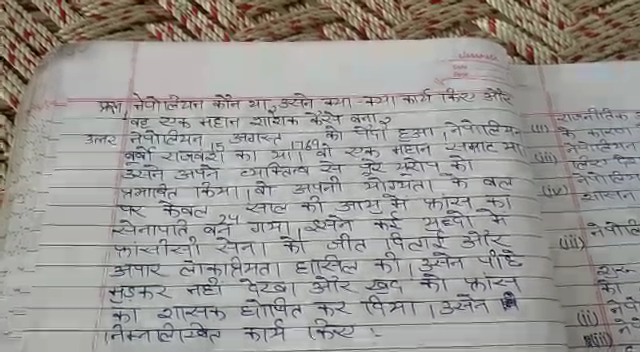 प्रश्न नेपोलियन कौन था, उसने क्या-क्या कार्य किए और
वह एक महान शासक कैसे बना?
उत्तर नेपोलियन 15 अगस्त 1769 को पैदा हुआ। नेपोलियन
राजवंश का था। वो एक महान सम्राट था
उसने अपने व्यक्तित्व से पूरे यूरोप को
प्रभावित किया। वो अपनी योग्यता के बल
पर केवल 24 साल की आयु में फ्रांस का
सेनापति बन गया। उसने कई युध्दो में
फ्रांसीसी सेना को जीत दिलाई और
अपार लोकप्रियता हासिल की। उसने पीछे
मुड़कर नहीं देखा और खुद को फ्रांस
का शासक घोषित कर दिया। उसने
निम्नलिखित कार्य किए :-
(ii)
राजनीतिक
के कारण
(iii) नेपोलियन
(iv) नेपोलि
शासन
(iii) नेपोलि
का
(ii) ने
(iii) ने